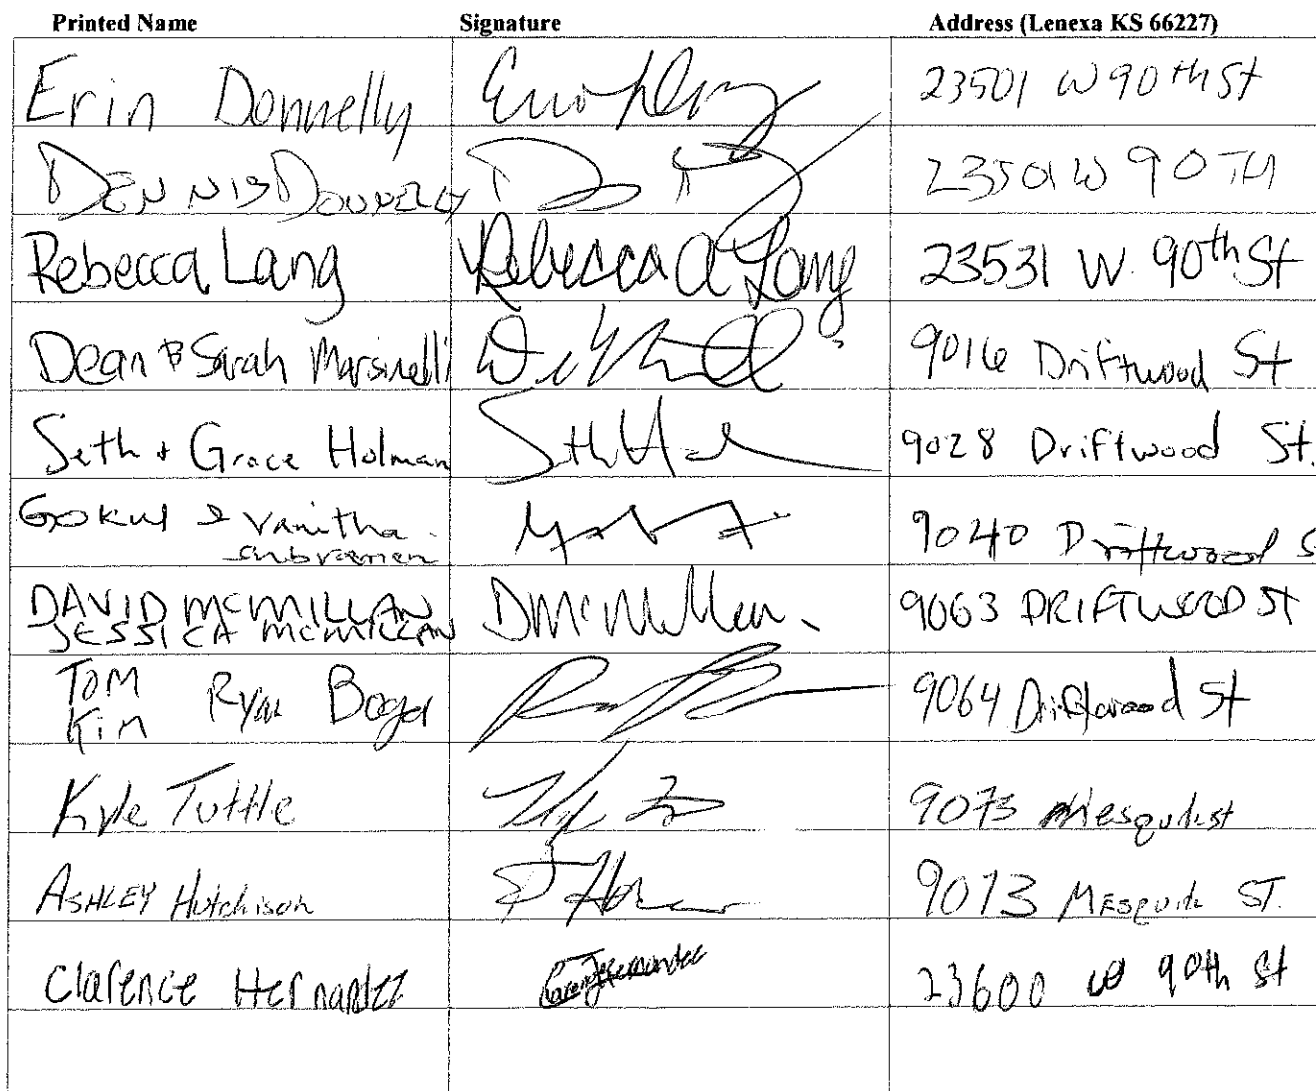 Printed Name Signature Address (Lenexa KS 66227)
Erin Donnelly 23501 W 90th St
DENNIS DONNELLY 23501 W 90TH
Rebecca Lang Rebecca A Lang 23531 W. 90th St
Dean & Sarah Marsinelli 9016 Driftwood St
Seth + Grace Holman 9028 Driftwood St.
Gokul & Vanitha 9040 Driftwood S
DAVID MCMILLAN DMcMillan. 9063 DRIFTWOOD ST
JESSICA MCMILLAN
TOM Ryan Boger 9064 Driftwood St
Kim
Kyle Tuttle 9073 St
ASHLEY Hutchison 9073 ST.
Clarence Hernandez 23600 W 90th St